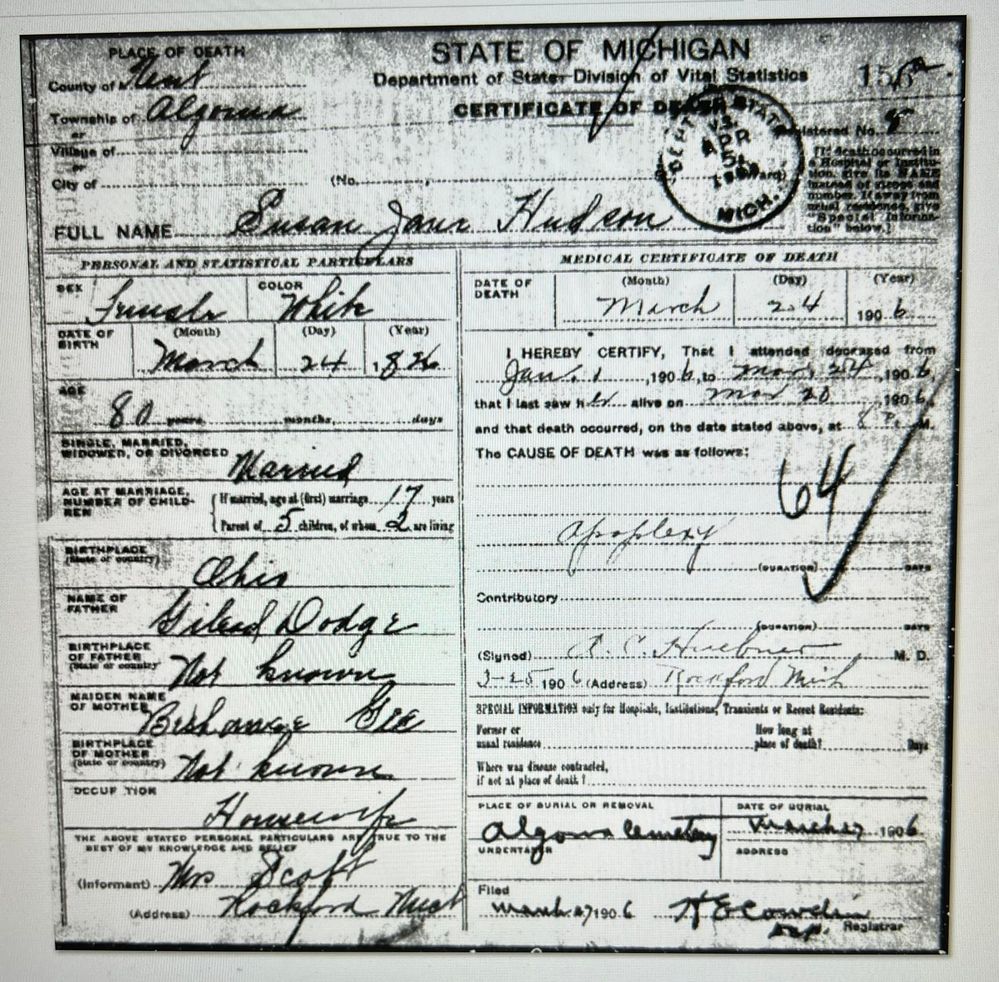 PLACE OF DEATH
County of Kent
Township of Algoma
or
Village of
or
City of
STATE OF MICHIGAN
Department of State-Division of Vital Statistics
CERTIFICATE OF DEATH
Registered No. 8
(No.
DEPT STATE
APR
5
MICH.
[If death occurred in
a Hospital or Institu-
tion, give its NAME
instead of street and
number. If away from
usual residence, give
"Special Informa-
tion" below.]
FULL NAME Susan Jane Hudson
PERSONAL AND STATISTICAL PARTICULARS
SEX Female
COLOR White
DATE OF BIRTH (Month) March (Day) 24 (Year) 1826
AGE
80 years, months, days
SINGLE, MARRIED,
WIDOWED, OR DIVORCED Married
AGE AT MARRIAGE,
NUMBER OF CHILD-
REN
If married, age at (first) marriage 17 years
Parent of 5 children, of whom 2 are living
BIRTHPLACE
(State or country)
Ohio
NAME OF
FATHER
Gilead Dodge
BIRTHPLACE
OF FATHER
(State or country
Not known
MAIDEN NAME
OF MOTHER
BIRTHPLACE
OF MOTHER
(State or country)
Not known
OCCUP TION
Housewife
THE ABOVE STATED PERSONAL PARTICULARS ARE TRUE TO THE
BEST OF MY KNOWLEDGE AND BELIEF
(Informant) Mrs Scoft
(Address) Rockford Mich
MEDICAL CERTIFICATE OF DEATH
DATE OF
DEATH
(Month) March (Day) 24 (Year) 1906
I HEREBY CERTIFY, That I attended deceased from
Jan. 1, 1906, to Mar, 24, 1906,
that I last saw her alive on Mar 20 1906,
and that death occurred, on the date stated above, at 8 P. M.
The CAUSE OF DEATH was as follows:
64
Apoplexy
(DURATION) DAYS
Contributory
(DURATION) DAYS
(Signed) A. C. Huebner M. D.
3-25 1906 (Address) Rockford Mich
SPECIAL INFORMATION only for Hospitals, Institutions, Transients or Recent Residents:
Former or
usual residence
How long at
place of death? Days
Where was disease contracted,
if not at place of death?
PLACE OF BURIAL OR REMOVAL
Algoma Cemetery
DATE OF BURIAL
March 27 1906
UNDERTAKER
ADDRESS
Filed
March 27 1906
H E Cowdin
Dep. Registrar